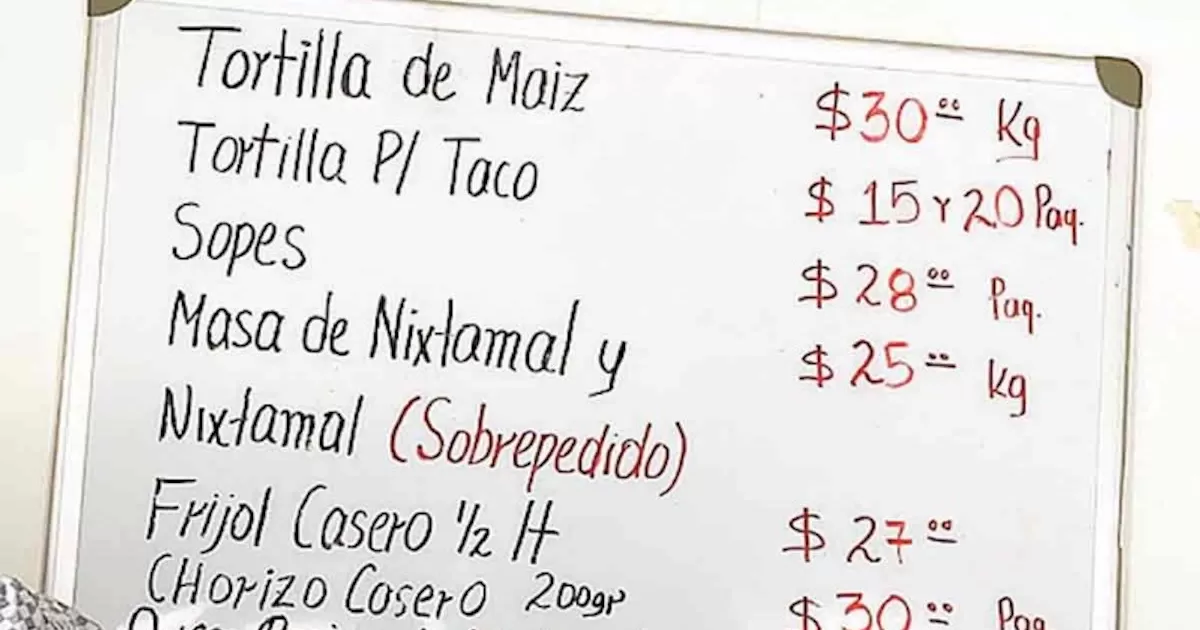 Tortilla de Maiz $30.00 Kg
Tortilla P/ Taco $ 15 Y 20 Paq.
Sopes $ 28.00 Paq.
Masa de Nixtamal y $ 25.00 kg
Nixtamal (Sobrepedido)
Frijol Casero 1/2 lt $ 27.00
CHorizo Casero 200gr $30.00 Paq